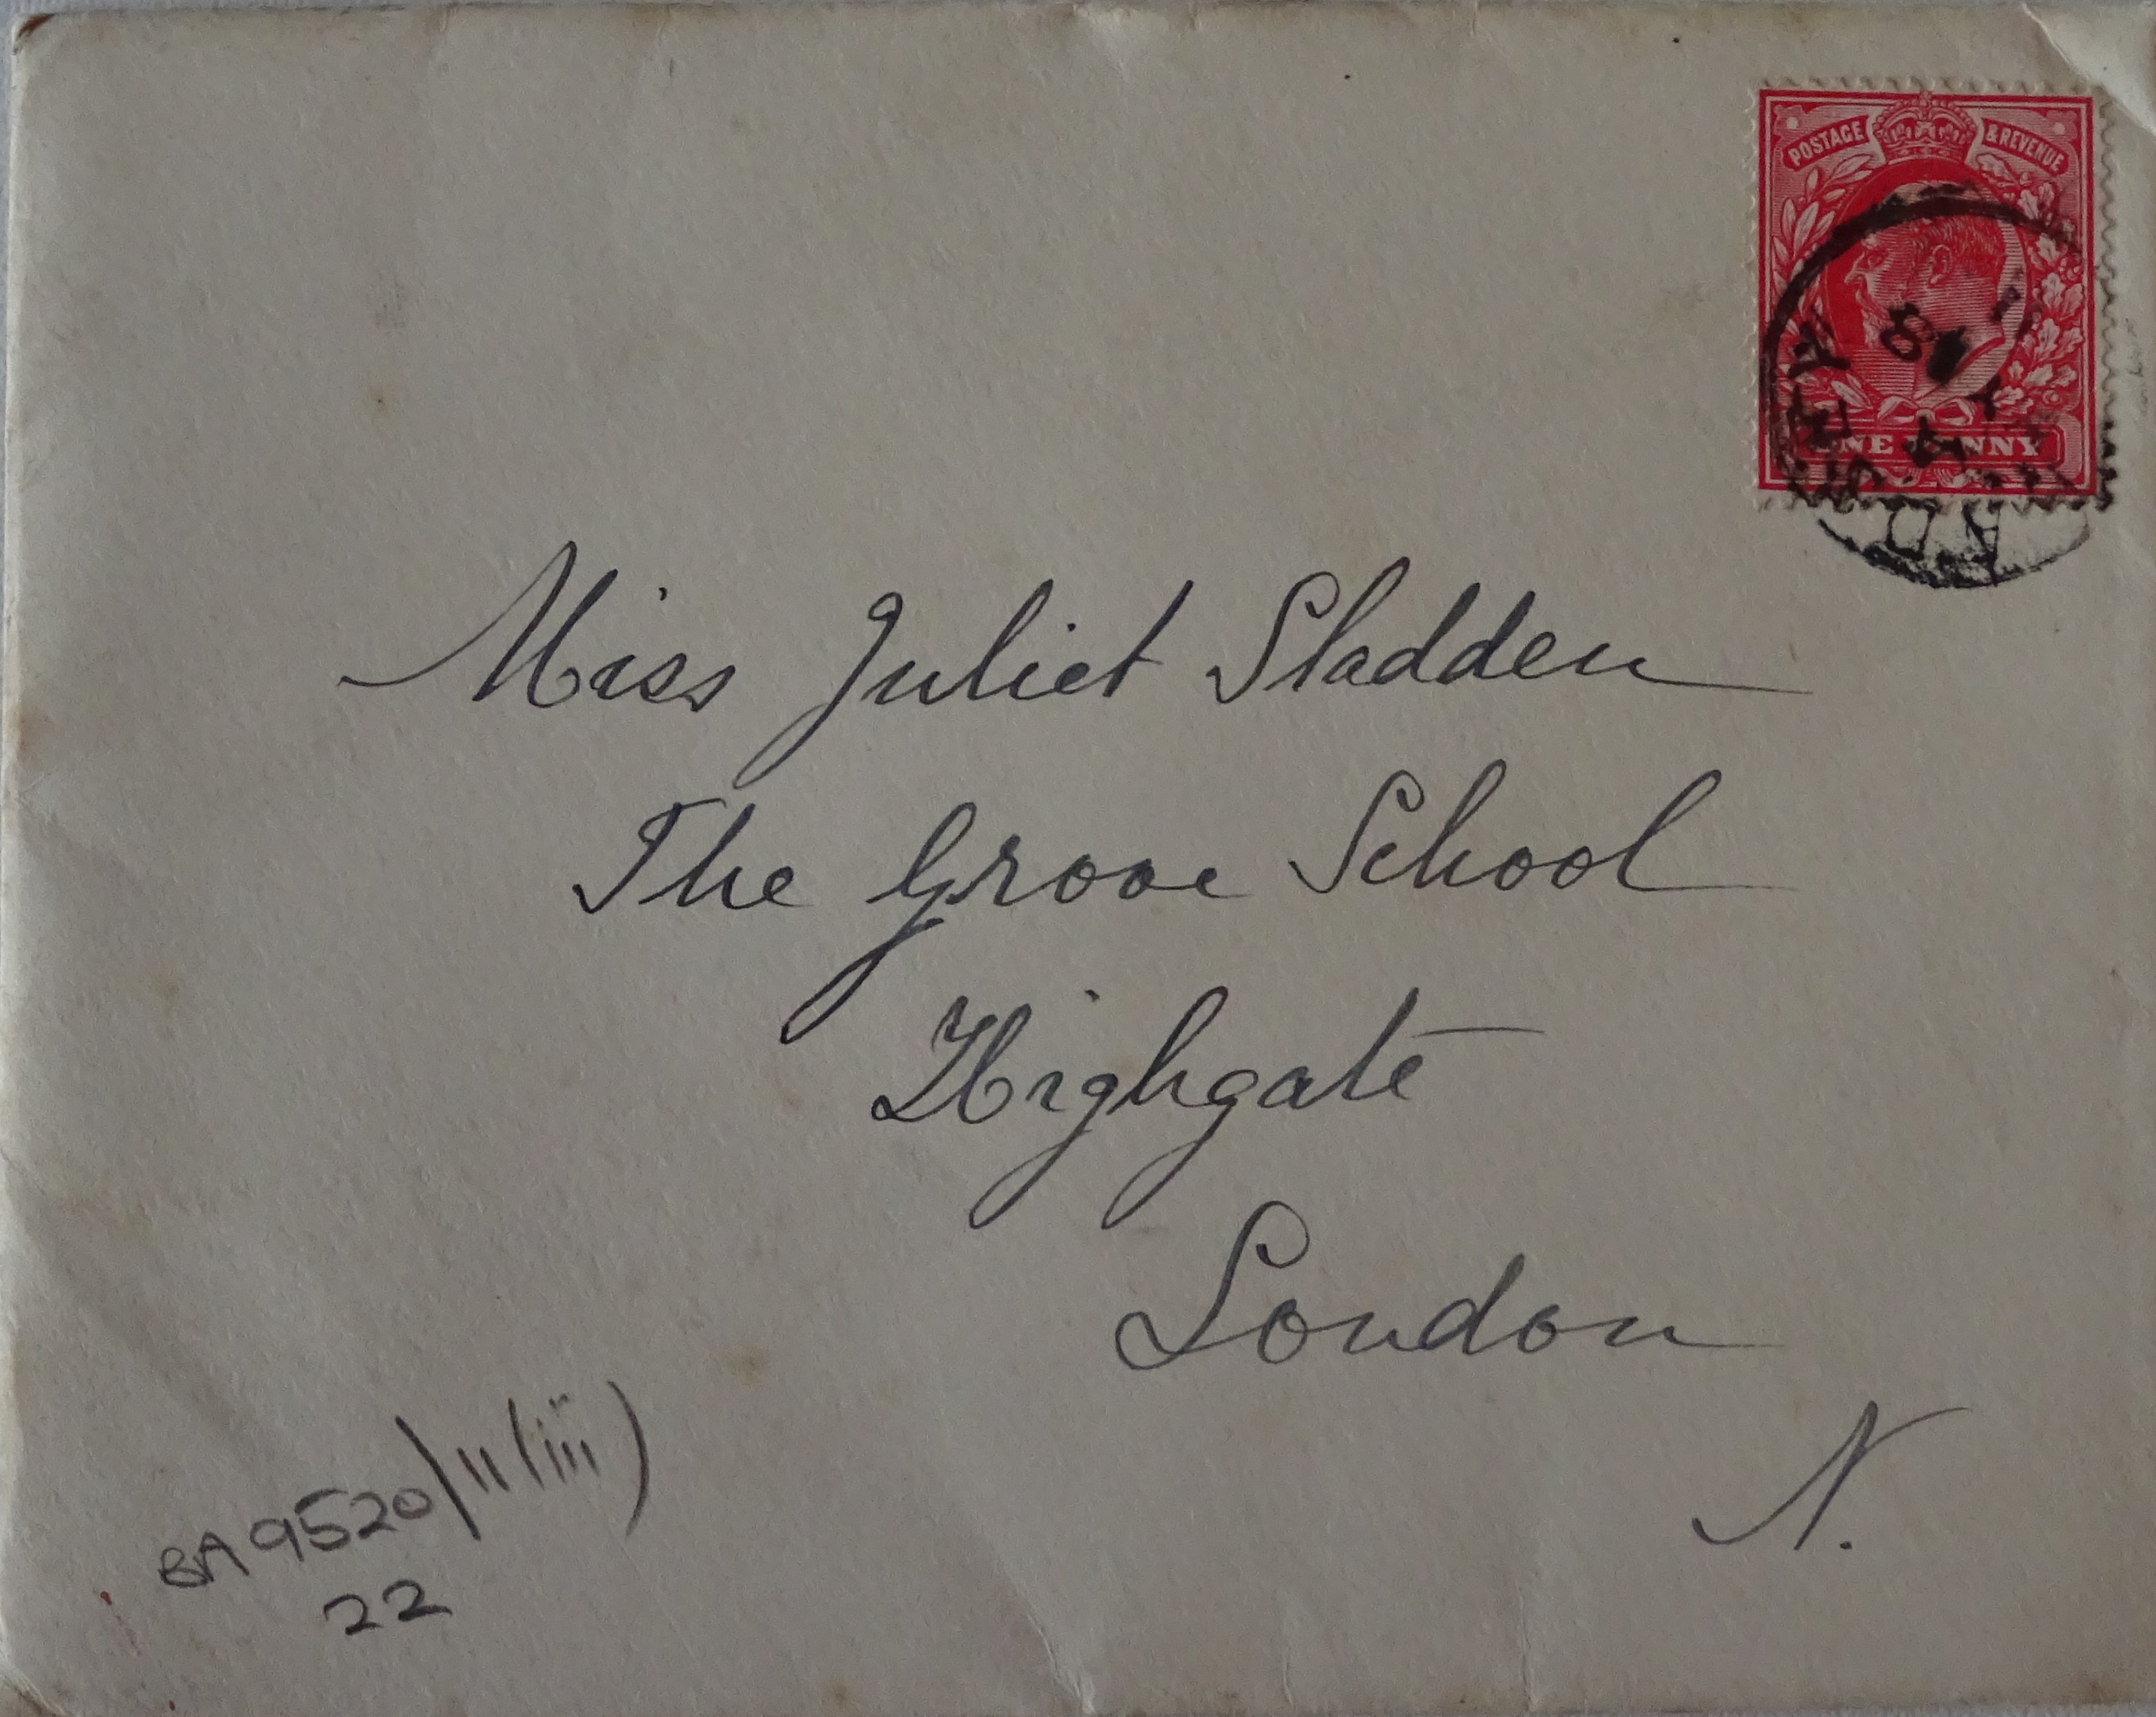 POSTAGE & REVENUE
ONE PENNY
Miss Juliet Sladden
The Grove School
Highgate
London
N.
BA9520/11(iii)
22